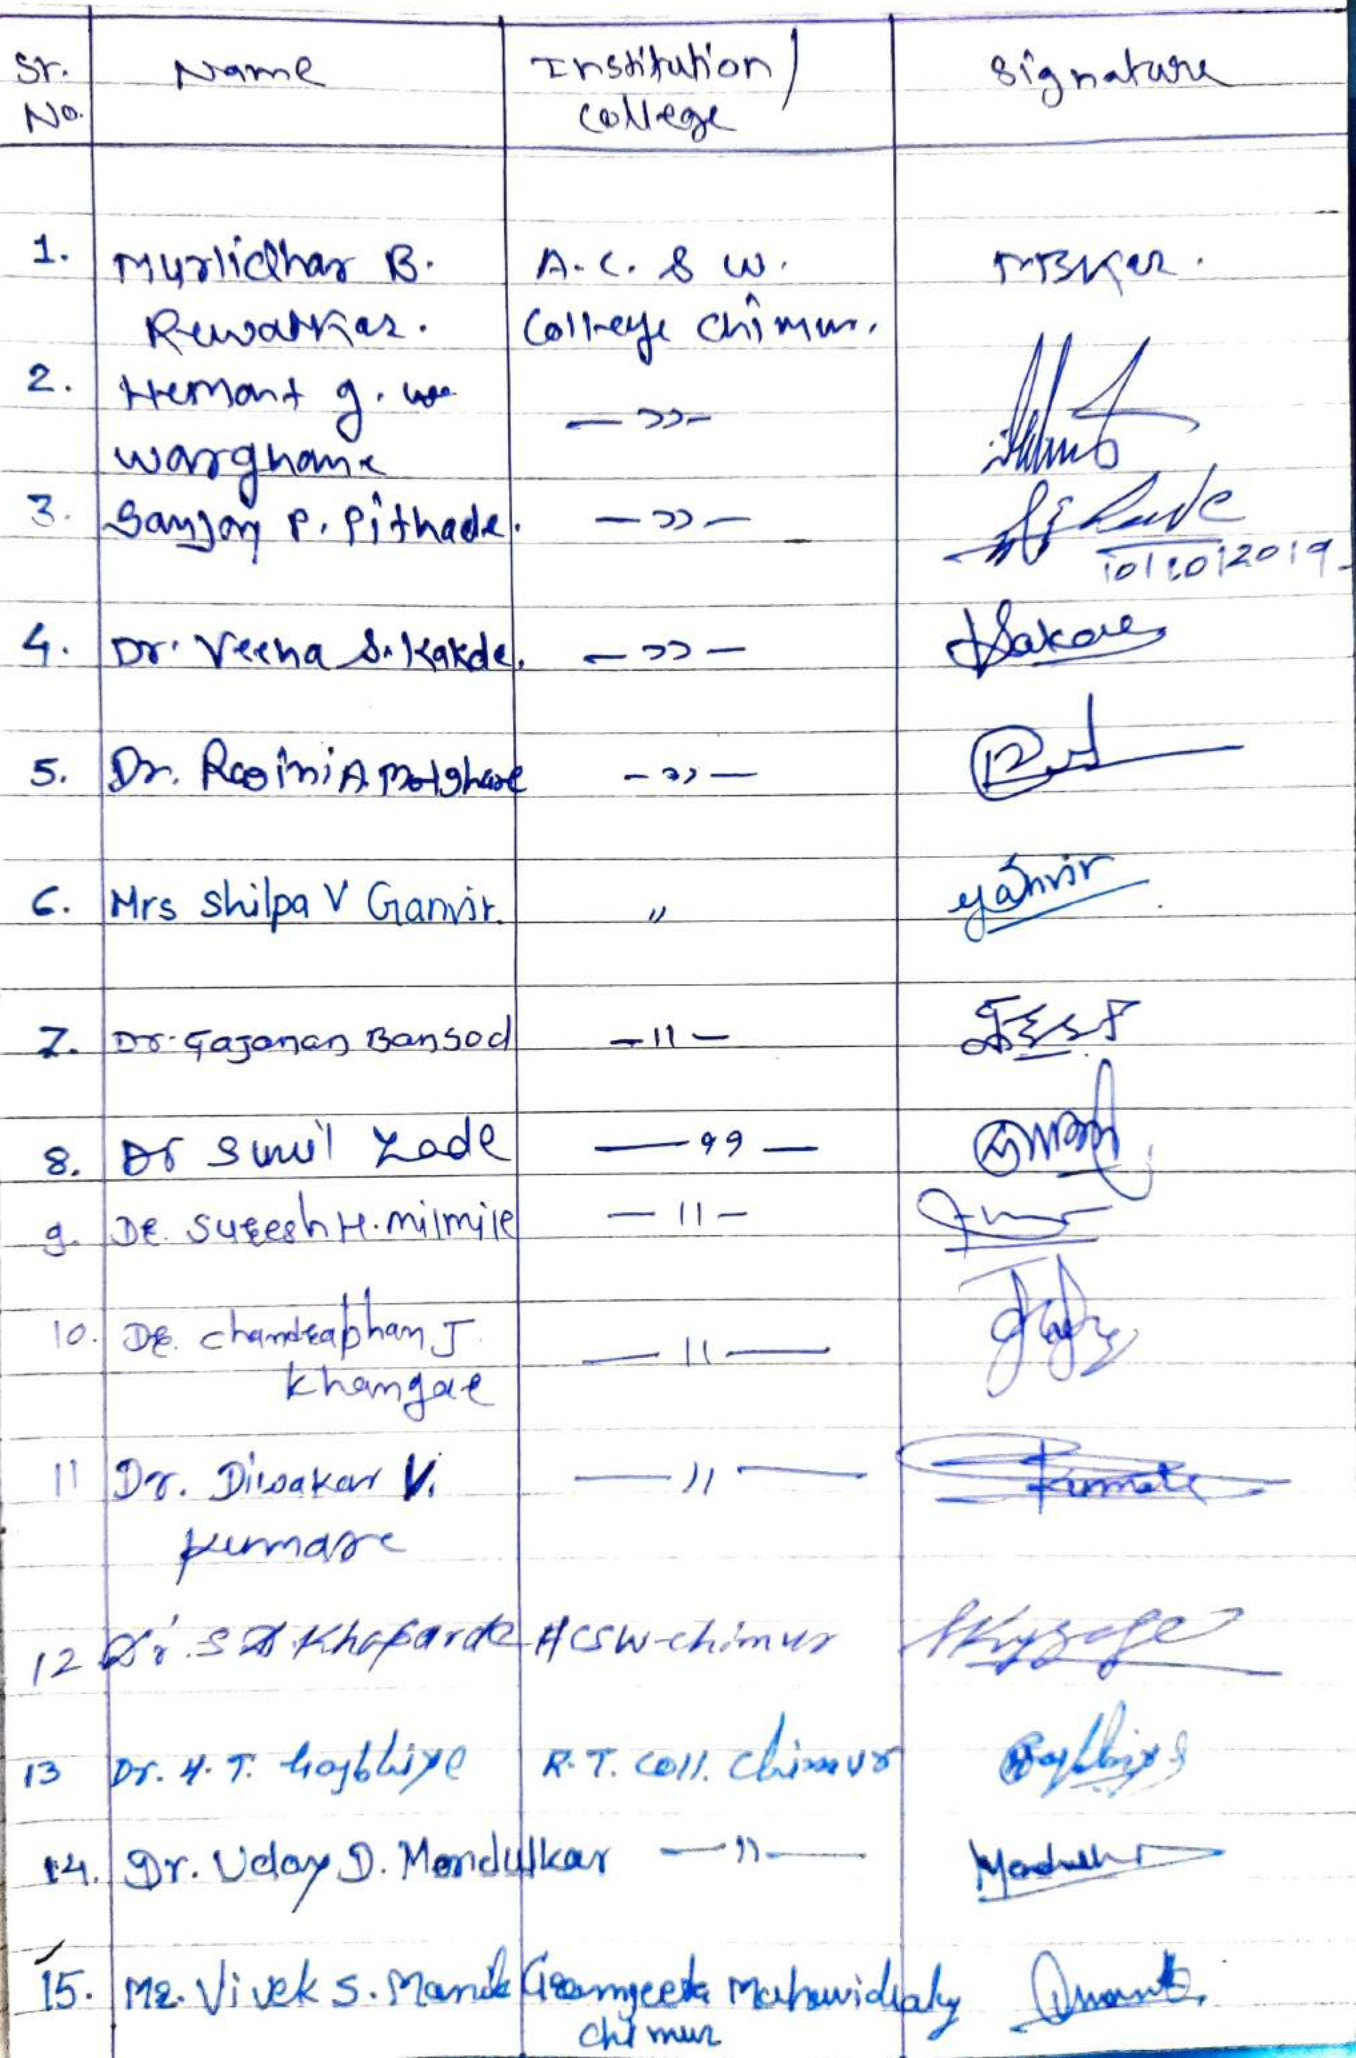 Sr. No. Name Institution/ College Signature
1. Murlidhar B. Rewatkar. A.C. & W. College Chimur.
2. Hemant g. Warghane — ,, —
3. Sanjay P. Pithade. — ,, —
10/10/2019
4. Dr. Veena S. Kakde. — ,, —
5. Dr. Rajni A — ,, —
6. Mrs Shilpa V Ganvir. "
7. Dr. Gajanan Bansod — 11 —
8. Dr Sunil Zade — 99 —
9. Dr. Suresh H. Milmile — 11 —
10. Dr. Chandrabhan J. Khangar — 11 —
11 Dr. Diwakar V. Kumare — 11 —
12 Dr. S D Khaparde ACSW-chimur
13 Dr. H. T. Gajbhiye R.T. Coll. Chimur
14. Dr. Uday D. Mendulkar — 11 —
15. Mr. Vivek S. Geeamgeeta Mahavidyalay chimur